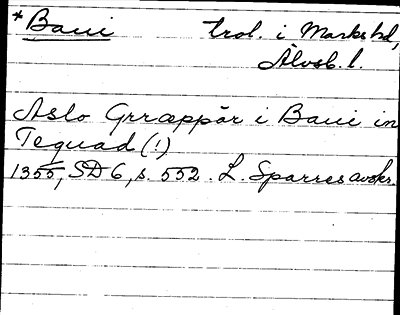 *Baui trol. i Marks hd,
Älvsb. l.
Aslo Grræppär i Baui in
Tequad (!)
1355, SD 6, s. 552. L. Sparres avskr.